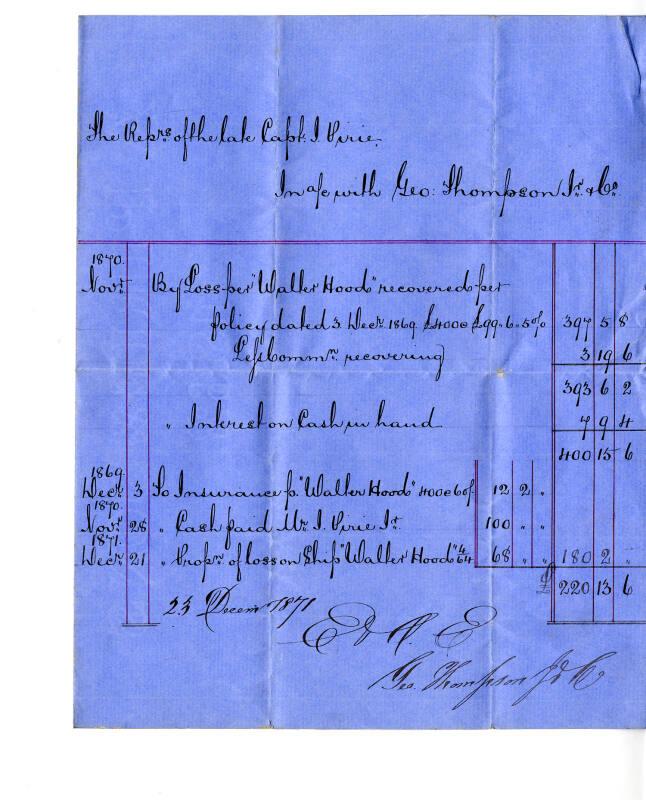 The Reprs of the late Capt. J. Pirie.
In a/c with Geo: Thompson Jr. & Co.
1870.
Novr. By Loss per "Walter Hood" recovered per
policy dated 3 Decr. 1869. £400 @ £99. 6. 5 % 397 5 8
Less Commn. recovering 3 19 6
393 6 2
" Interest on Cash in hand 7 9 4
400 15 6
1869.
Decr. 3 To Insurance p. "Walter Hood" 400 @ 60/- 12 2 "
1870.
Novr. 28 " Cash paid Mr. J. Pirie Jr. 100 " "
1871.
Decr. 21 " Propn. of loss on Ship "Walter Hood" 4/64 68 " " 180 2 "
£ 220 13 6
23 Decem 1871
E & O. E
Geo. Thompson Jr & Co